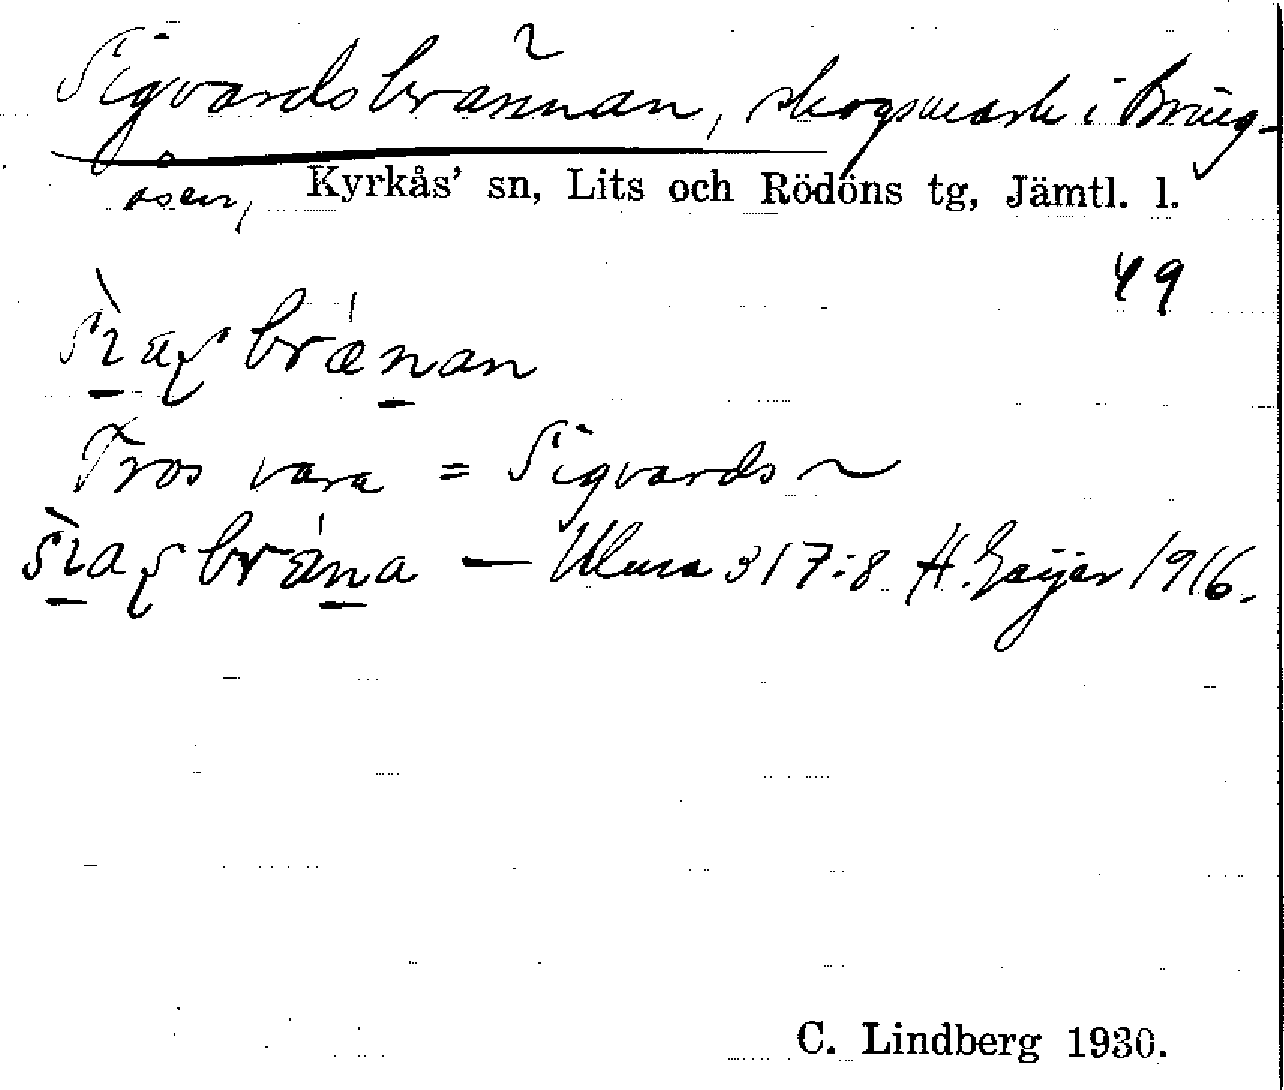 Sigvardsbrännan, skogsmark i Bring-
åsen, Kyrkås' sn, Lits och Rödöns tg, Jämtl. l.
49
bränan
Tros vara = Sigvards ~
bräna — Ulma 317:8 H. Geijer 1916.
C. Lindberg 1930.